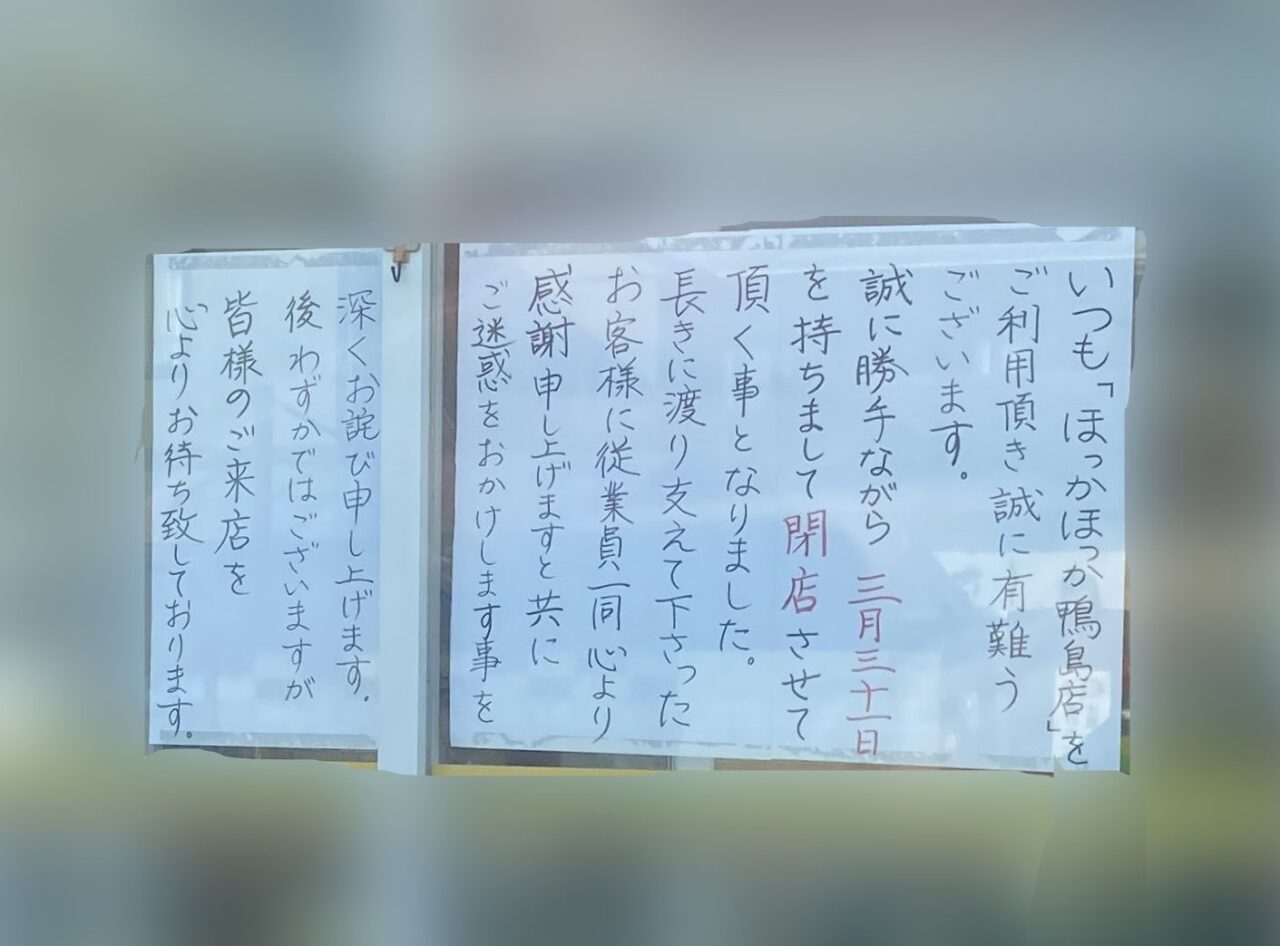 いつも「ほっかほっか鴨島店」を
ご利用頂き誠に有難う
ございます。
誠に勝手ながら 三月三十一日
を持ちまして閉店させて
頂く事となりました。
長きに渡り支えて下さった
お客様に従業員一同心より
感謝申し上げますと共に
ご迷惑をおかけします事を
深くお詫び申し上げます。
後わずかではございますが
皆様のご来店を
心よりお待ち致しております。